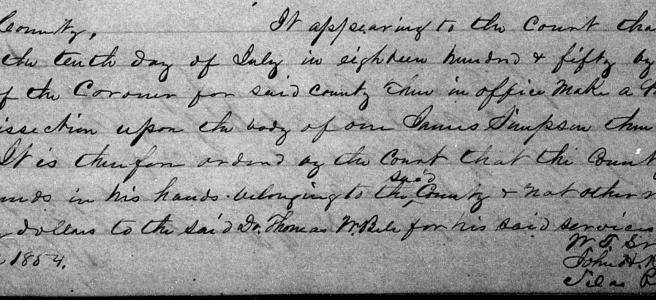 County, It appearing to the Court tha
the tenth day of July in eighteen hundred & fifty by
of the Coroner for said county then in office make a
issection upon the body of one James Simpson then
It is therefore ordered by the Court that the County
nds in his hands belonging to the said County & not other
dollars to the said Dr. Thomas W. Bele for his said services
W. T.
1854. John H.
Silas